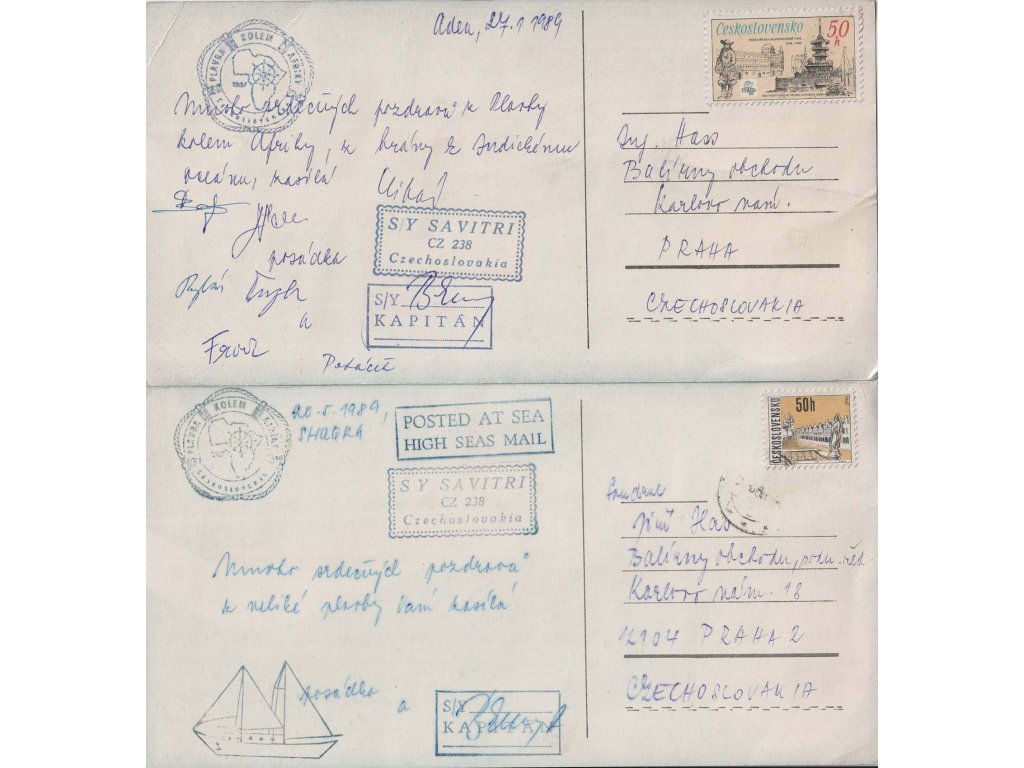 Aden, 27.1 1989
PLAVBA KOLEM AFRIKY
1987
ČESKOSLOVENSKO
Mnoho srdečných pozdravů z Plavby
kolem Afriky, z brány k Indickému
oceánu, zasílá
posádka
a
S/Y SAVITRI
CZ 238
Czechoslovakia
S/Y
KAPITÁN
Československo
50
h
Ing. Hass
Balírny obchodu
Karlovo nám.
PRAHA
CZECHOSLOVAKIA
PLAVBA KOLEM AFRIKY
ČESKOSLOVENSKO
20.5.1989,
SHAQRA
POSTED AT SEA
HIGH SEAS MAIL
S Y SAVITRI
CZ 238
Czechoslovakia
Mnoho srdečných pozdravů
z veliké plavby Vám zasílá
posádka
a
S/Y
KAPITÁN
ČESKOSLOVENSKO
50h
Soudruh
Jiří Has
Balírny obchodu, podn. řed.
Karlovo nám. 18
12104 PRAHA 2
CZECHOSLOVAKIA